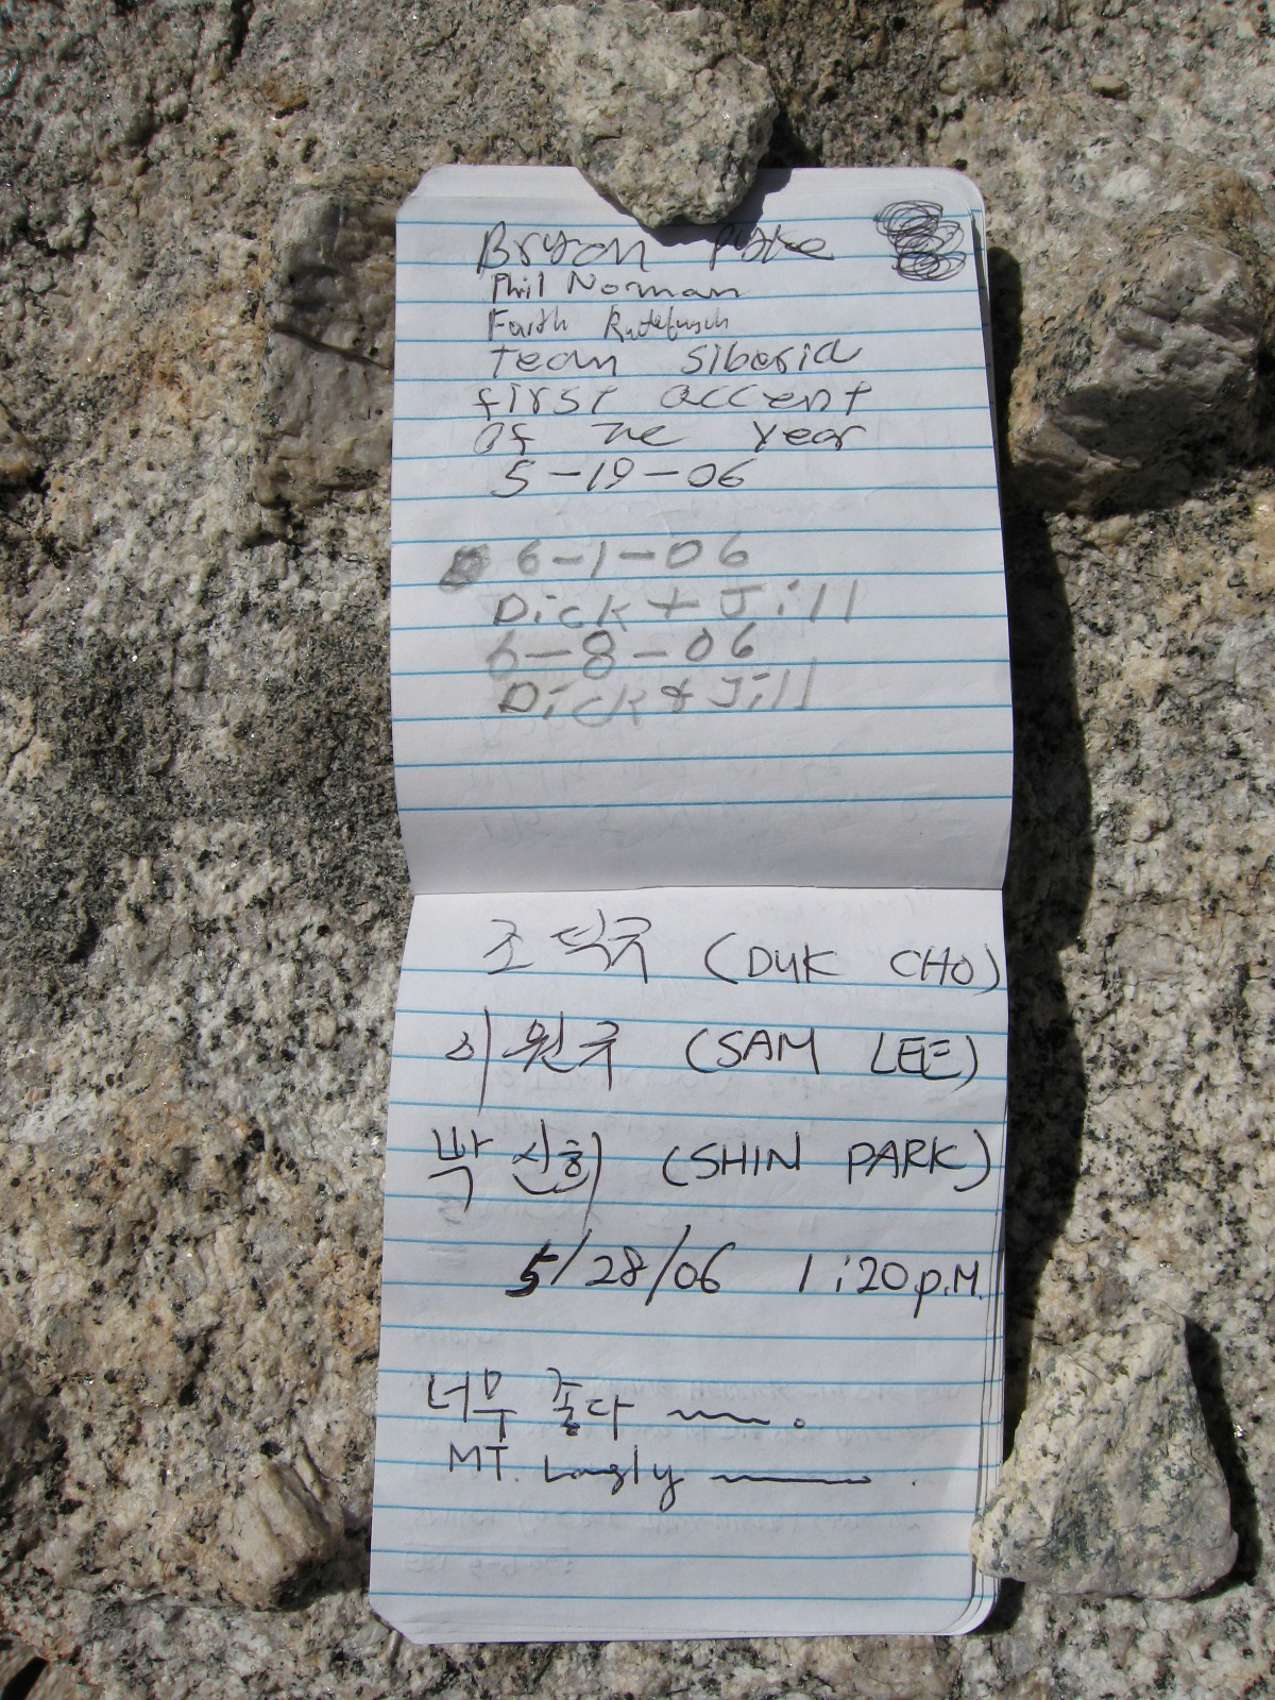 Bryan
Phil Norman
Faith
Team Siberia
first accent
of the year
5-19-06
6-1-06
Dick + Jill
6-8-06
Dick + Jill
조덕국 (DUK CHO)
이원국 (SAM LEE)
박신희 (SHIN PARK)
5/28/06 1:20 p.M.
너무 좋다 ~~.
MT. Langly